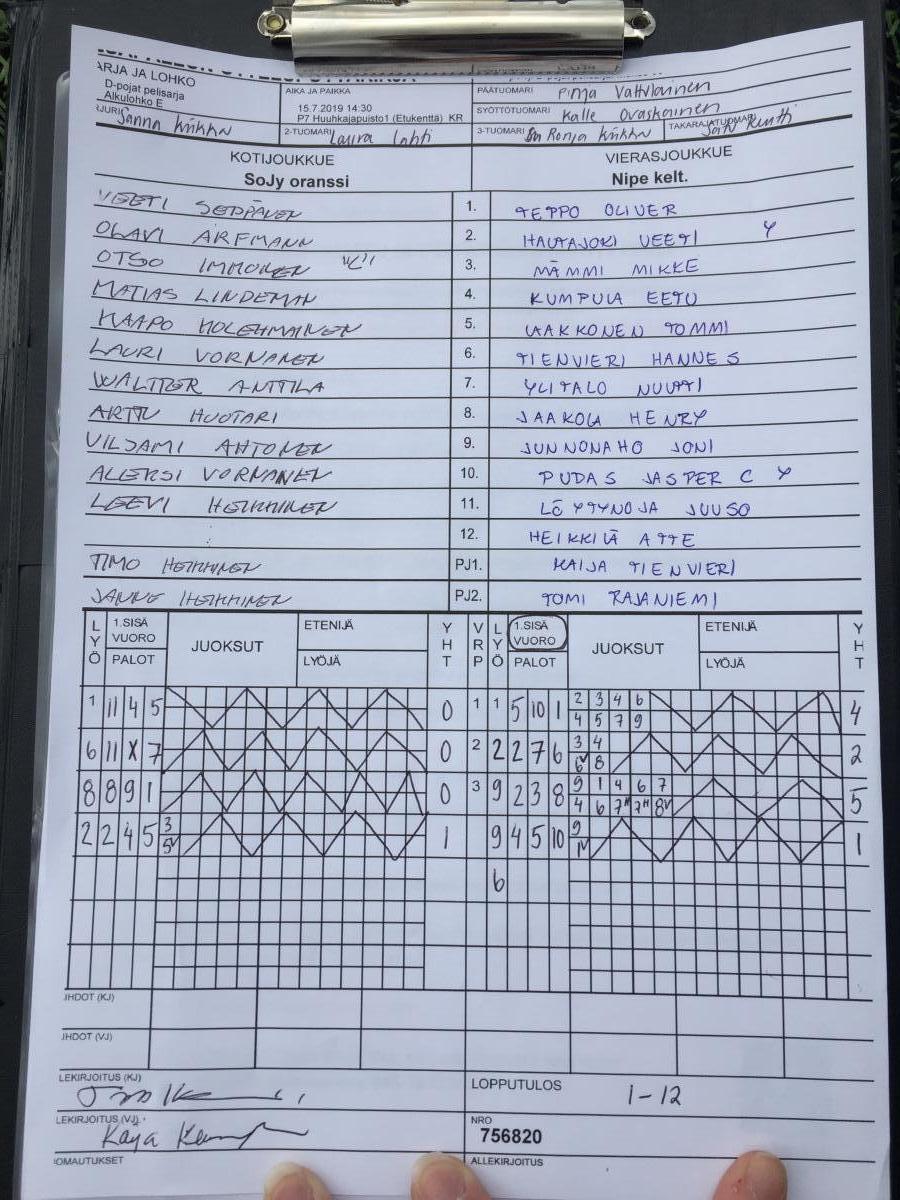 ARJA JA LOHKO
D-pojat pelisarja
Alkulohko E
AIKA JA PAIKKA
15.7.2019 14:30
P7 Huuhkajapuisto1 (Etukenttä) KR
PÄÄTUOMARI Pinja
SYÖTTÖTUOMARI Kalle Ovaskainen
Sanna
2-TUOMARI Laura Lahti
3-TUOMARI Ronja
TAKARAJATUOMARI
KOTIJOUKKUE
VIERASJOUKKUE
SoJy oranssi
Nipe kelt.
VEETI SEPPÄNEN 1. TEPPO OLIVER
OLAVI ÄRFMANN 2. HAUTAJOKI VEETI Y
OTSO IMMONEN "C" 3. MÄMMI MIKKE
MATIAS LINDEMAN 4. KUMPULA EETU
5. LAAKKONEN TOMMI
LAURI VORNANEN 6. TIENVIERI HANNES
WALTTER ANTTILA 7. YLITALO NUUTTI
ARTTU HUOTARI 8. JAAKOLA HENRY
VILJAMI AHTONEN 9. JUNNONAHO JONI
ALEKSI VORNANEN 10. PUDAS JASPER C Y
LEEVI HEIKKINEN 11. LÖYTYNOJA JUUSO
12. HEIKKILÄ ATTE
TIMO HEIKKINEN PJ1. KAIJA TIENVIERI
JANNE HEIKKINEN PJ2. TOMI RAJANIEMI
LYÖ 1.SISÄ VUORO PALOT JUOKSUT ETENIJÄ LYÖJÄ YHT VRP LYÖ 1.SISÄ VUORO PALOT JUOKSUT ETENIJÄ LYÖJÄ YHT
1 11 4 5 0 1 1 5 10 1 2 3 4 6 4
4 5 7 9
6 11 X 7 0 2 2 2 7 6 3 4 2
6V 8
8 8 9 1 0 3 9 2 3 8 9 1 4 6 7 5
4 6 7" 7" 8V
2 2 4 5 3 1 9 4 5 10 9 1
5V 1V
6
(KJ)
(VJ)
LEKIRJOITUS (KJ)
LOPPUTULOS 1-12
LEKIRJOITUS (VJ)
NRO
756820
OMAUTUKSET
ALLEKIRJOITUS